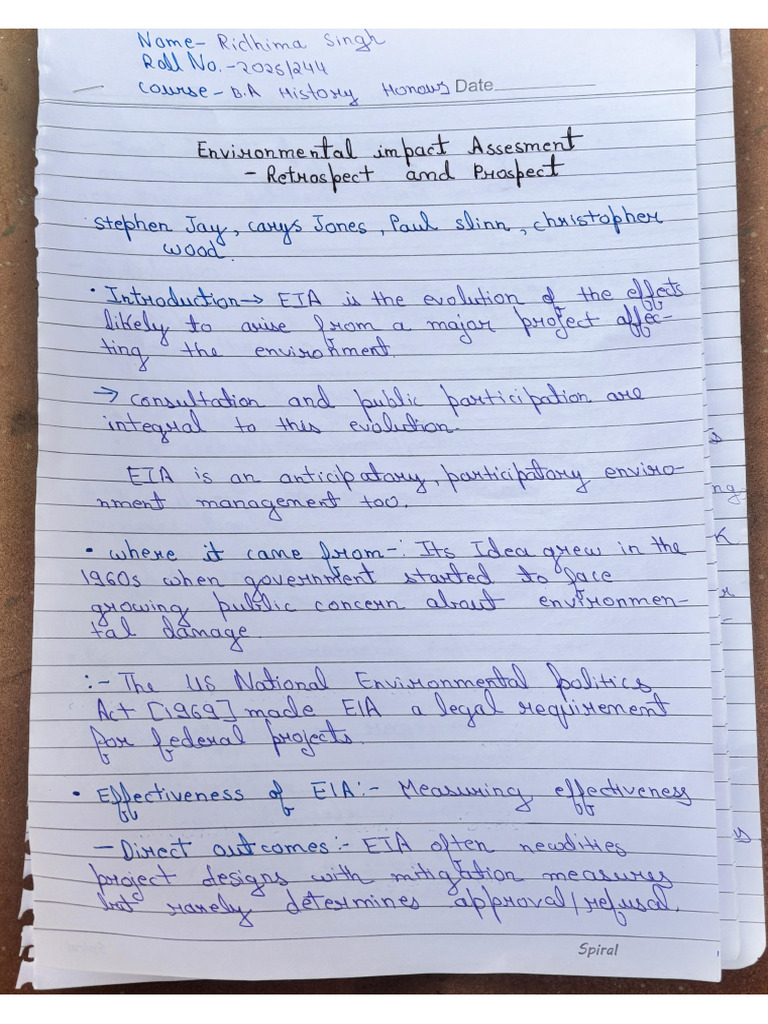 Name- Ridhima Singh
Roll No.-2025/244
Course- B.A History Honours Date
Environmental impact Assesment
- Retrospect and Prospect
stephen Jay, carys Jones, Paul slinn, christopher
wood.
• Introduction→ EIA is the evolution of the effects
likely to arise from a major project affec-
ting the environment.
→ consultation and public participation are
integral to this evolution.
EIA is an anticipatory, participatory enviro-
nment management too.
• where it came from-: Its Idea grew in the
1960s when government started to face
growing public concern about environmen-
tal damage.
:- The US National Environmental politics
Act [1969] made EIA a legal requirement
for federal projects.
• Effectiveness of EIA:- Measuring effectiveness
- Direct outcomes:- EIA often
project designs with mitigation measures
but rarely determines approval/refusal.
Spiral